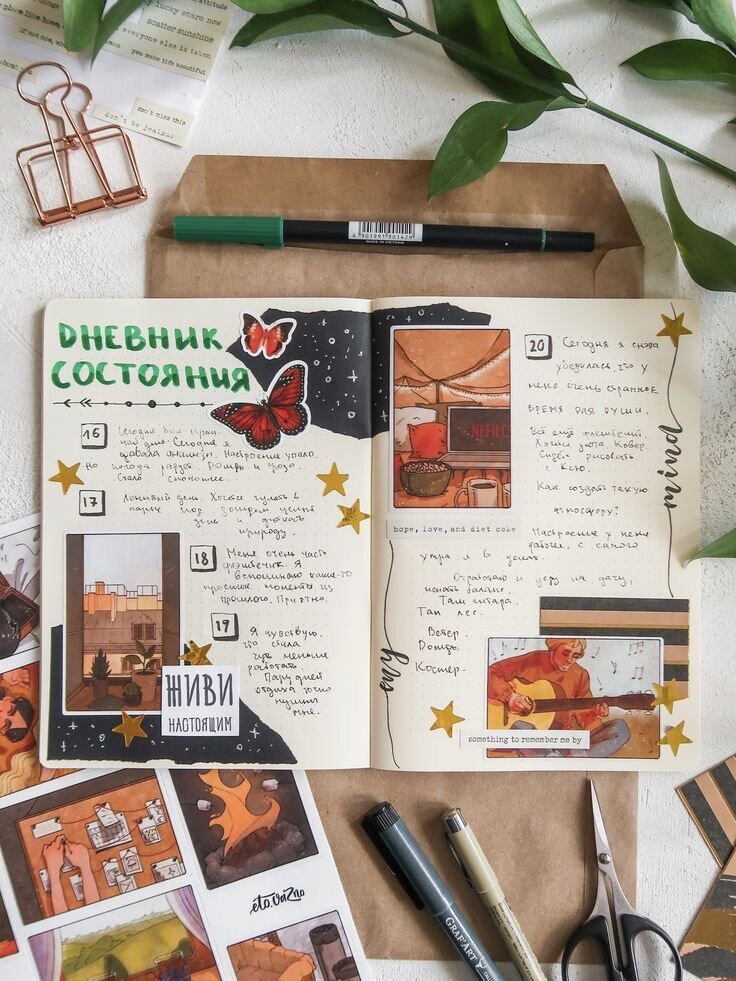 lucky stars
scatter sunshine
everyone else is taken
you make life beautiful
don't miss this
don't be jealous
4 901991 901429
MADE IN VIETNAM
ДНЕВНИК
СОСТОЯНИЯ
16
Сегодня был
Сегодня я
сдавала анализы. Настроение упало.
Но погода радует. Дождь и
Стало спокойнее.
17
Ленивый день. Хочется гулять в
парке под дождем
и
природу.
18
Меня очень часто
флэшбечит. Я
вспоминаю какие-то
простые моменты из
прошлого. Приятно.
19
Я чувствую,
что стала
чуть меньше
работать.
Пару дней
отдыха точно
нужны
мне.
ЖИВИ
НАСТОЯЩИМ
20
Сегодня я снова
убедилась что у
меня очень странное
время для души.
Всё ещё флешбечит.
Хочется уюта. Ковер.
Сидеть рисовать
с Ксю.
Как создать такую
атмосферу?
Настроение у меня
с самого
утра я в делах.
Отработаю и уеду на дачу,
искать баланс.
Там гитара.
Там лес.
Ветер.
Дождь.
Костер.
NEFLIC
hope, love, and diet coke
my
mind
something to remember me by
eto.vizno
GRAF'ART